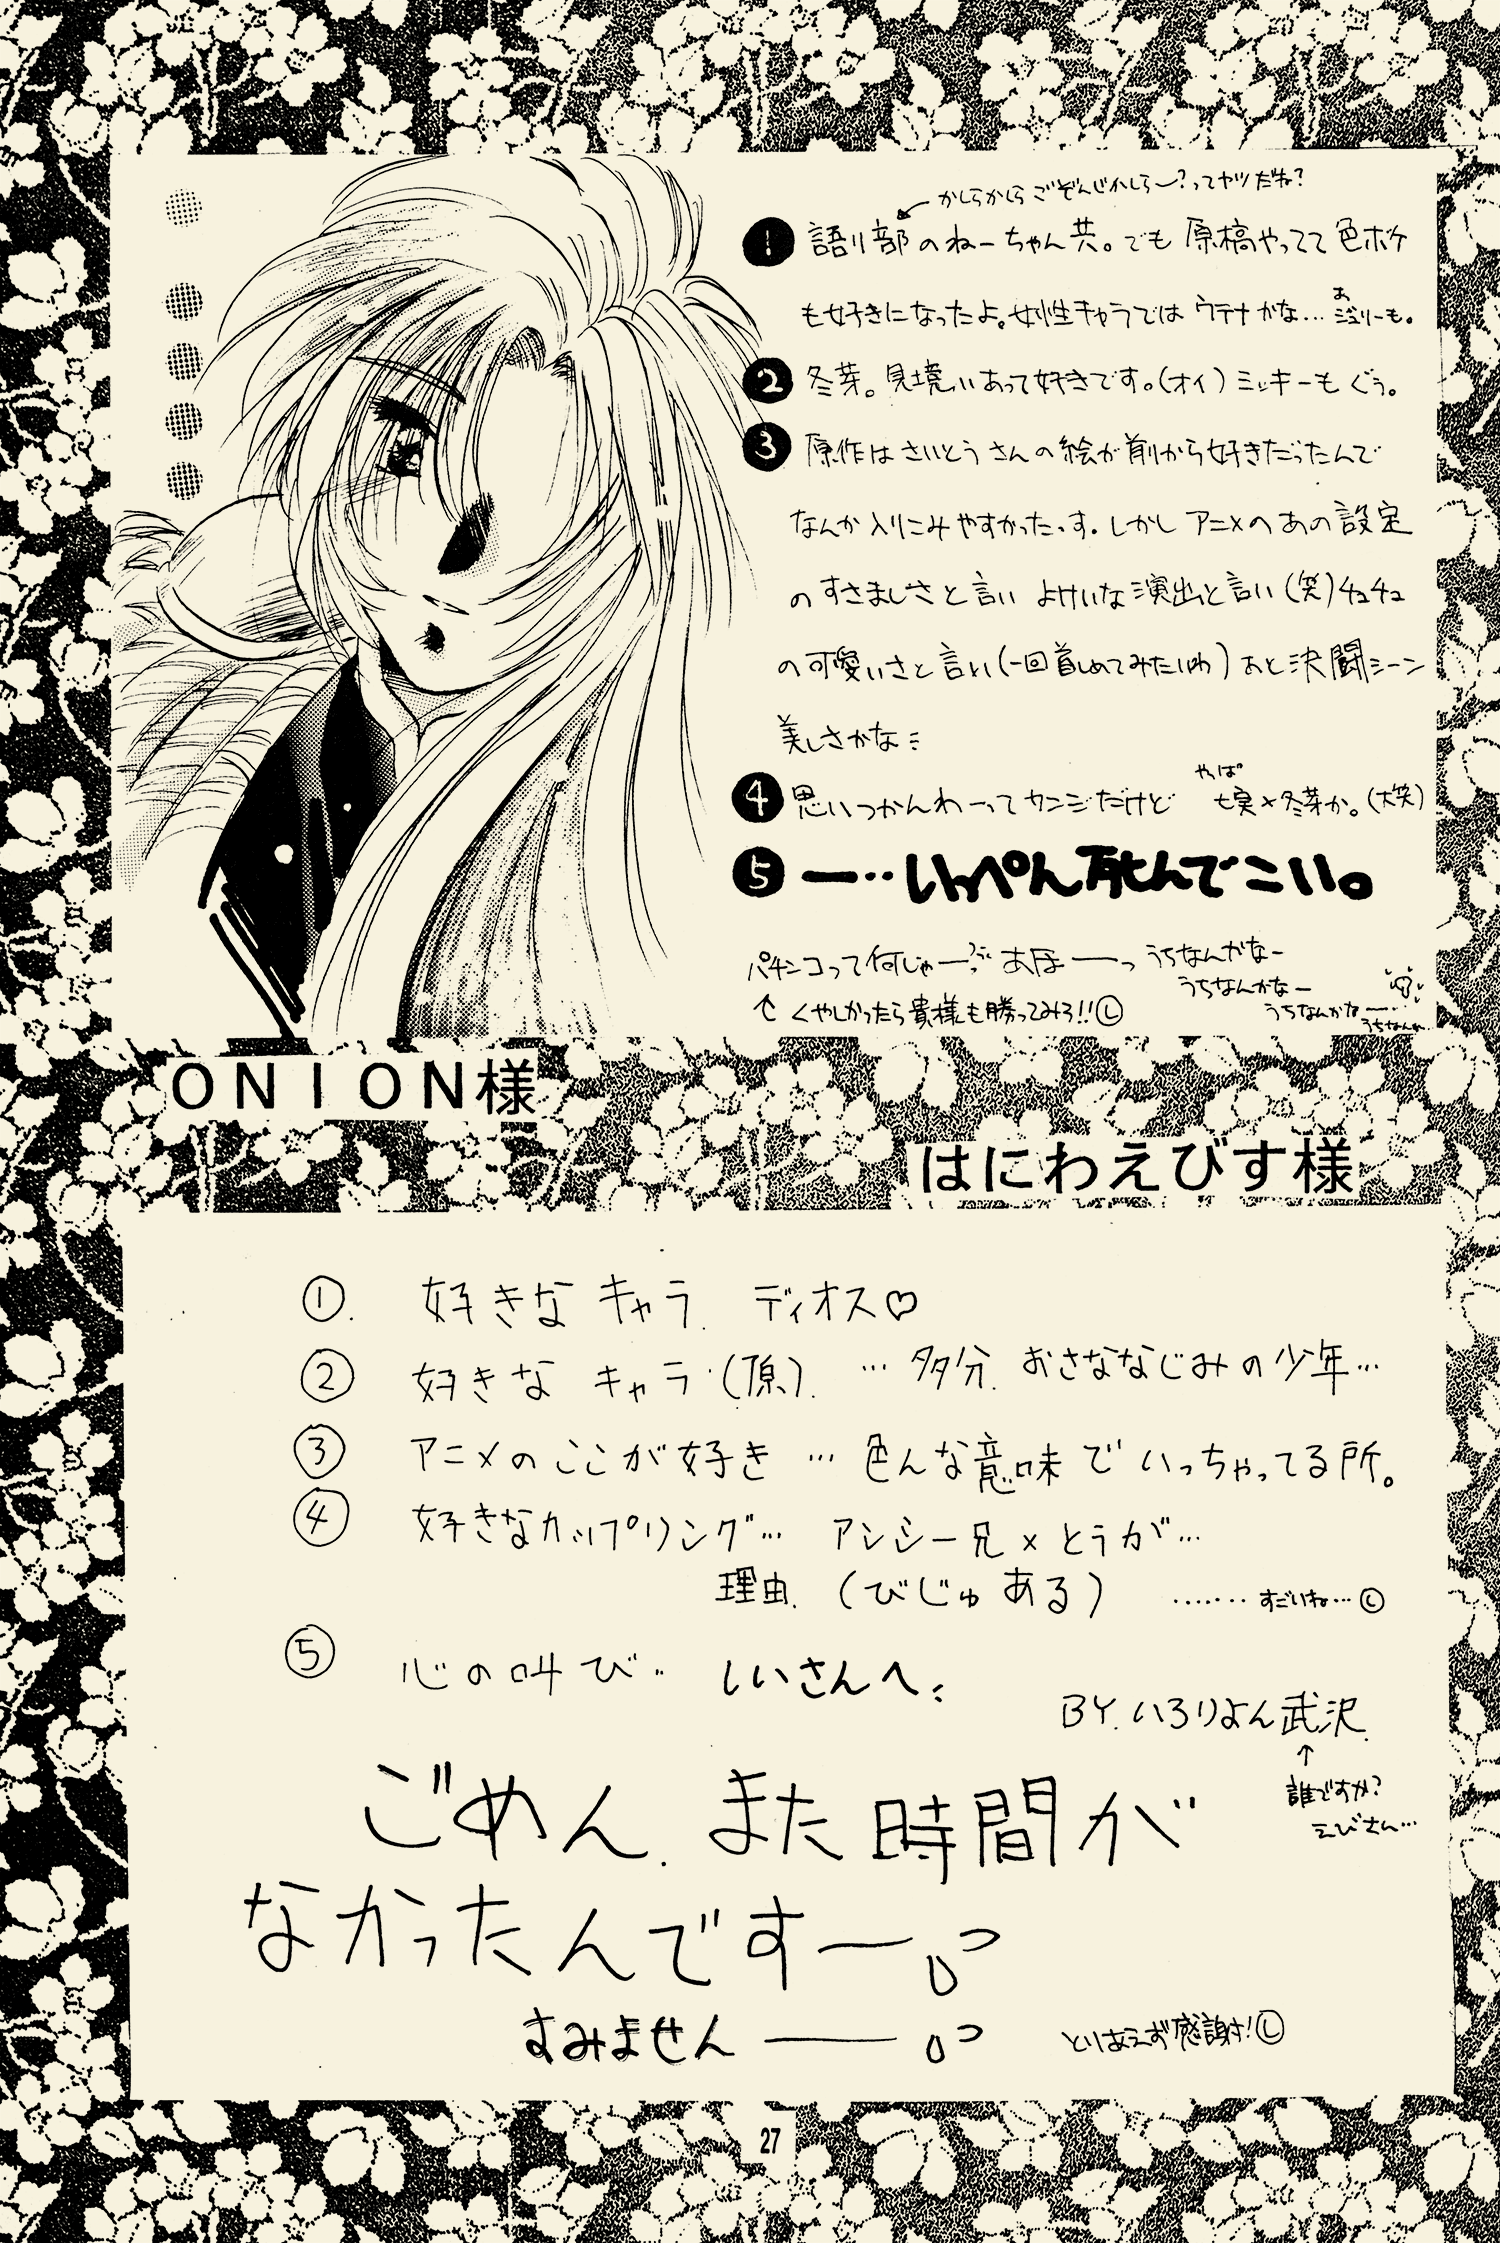 かしらかしら ごぞんじかしら〜?ってヤツだね?
1 語り部のねーちゃん共。でも原稿やってて色ボケ
も好きになったよ。女性キャラではウテナかな… お
ジュリーも。
2 冬芽。見境いあって好きです。(オイ)ミッキーもぐぅ。
3 原作はさいとうさんの絵が前から好きだったんで
なんか入りこみやすかったっす。しかしアニメのあの設定
のすさまじさと言い よけいな演出と言い(笑)チュチュ
の可愛いさと言い(一回首しめてみたいわ)あと決闘シーン
美しさかな…
やっぱ
4 思いつかんわーってカンジだけど 七実×冬芽か。(大笑)
5 ー‥いっぺん死んでこい。
パチンコって何じゃーっ あほーっ うちなんかなー
うちなんかなー
うちなんかなー…
うちなんか…
↑くやしかったら貴様も勝ってみろ!!Ⓛ
ONION様
はにわえびす様
①. 好きなキャラ. ディオス♡
② 好きなキャラ(原). …多分. おさななじみの少年…
③ アニメのここが好き …色んな意味でいっちゃってる所。
④ 好きなカップリング… アンシー兄×とうが…
理由.(びじゅある) ……‥すごいね…Ⓛ
⑤ 心の叫び‥ しいさんへ‥
BY.いろりよん武沢.
↑
誰ですか?
えびさん…
ごめん. また時間が
なかったんですー。
すみませんー。
とりあえず感謝!Ⓛ
27